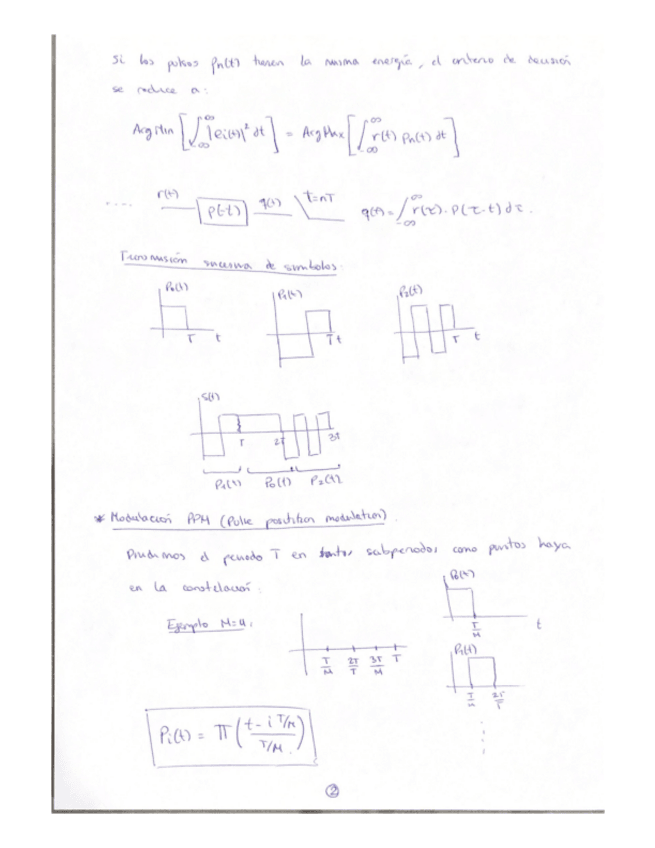 Si los pulsos Pn(t) tienen la misma energía, el criterio de decisión
se reduce a:
ArgMin [∫_-∞^∞ |ei(t)|² dt] = ArgMax [∫_-∞^∞ r(t) Pn(t) dt]
.... r(t) P(-t) q(t) t=nT q(t) = ∫_-∞^∞ r(τ) · P(τ-t) dτ.
Transmisión sucesiva de símbolos:
P0(t) P1(t) P2(t)
T t T t T t
S(t)
T 2T 3T
P1(t) P0(t) P2(t)
* Modulación PPM (Pulse position modulation).
Dividimos el periodo T en tantos subperiodos como puntos haya
en la constelación:
P0(t)
Ejemplo M=4:
T/M t
T/M 2T/T 3T/M T
P1(t)
T/M 2T/T
Pi(t) = Π((t - i T/M)/(T/M))
2